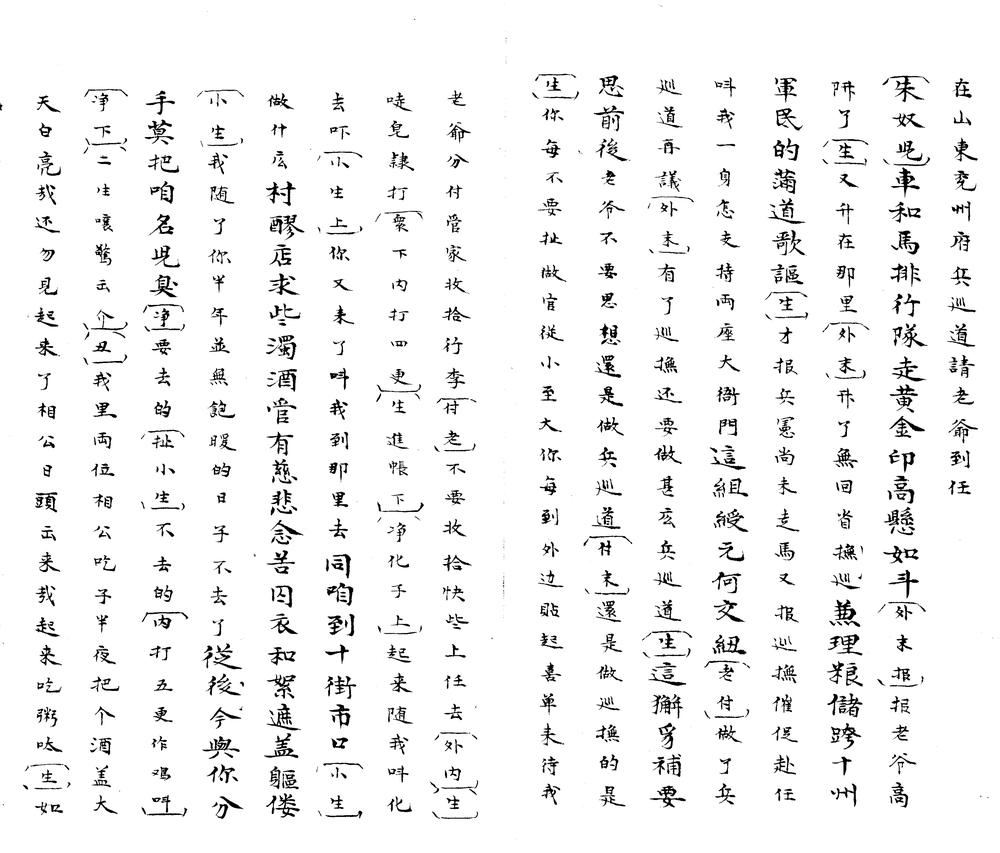 在山東兖州府兵巡道請老爺到任
朱奴児車和馬排行隊走黄金印高懸如斗外末报报老爷高
陞了生又升在那里外末升了無回省撫巡兼理粮儲跨十州
軍民的蒲道歌謳生才报兵憲尚未走馬又报巡撫催促赴任
呌我一身怎支持両座大衙門這組綬元何交紐老付做了兵
巡道再議外末有了巡撫还要做甚庅兵巡道生這獬豸補要
思前後老爷不要思想還是做兵巡道付末還是做巡撫的是
生你每不要扯做官從小至大你每到外边貼起喜单来待我
老爺分付管家收拾行李付老不要收拾快些上任去外内生
唗皂隷打衆下内打四更生進帳下净化子上起来随我呌化
去吓小生上你又来了呌我到那里去同咱到十街市口小生
做什庅村醪店求些濁酒管有慈悲念苦囚衣和絮遮盖軀偻
小生我随了你半年並無飽暖的日子不去了從後今與你分
手莫把咱名児臭净要去的扯小生不去的内打五更作鸡呌
净下二生嚷驚云介丑我里両位相公吃子半夜把个酒盖大
天白亮哉还勿見起来了相公日頭出来哉起来吃粥呔生如